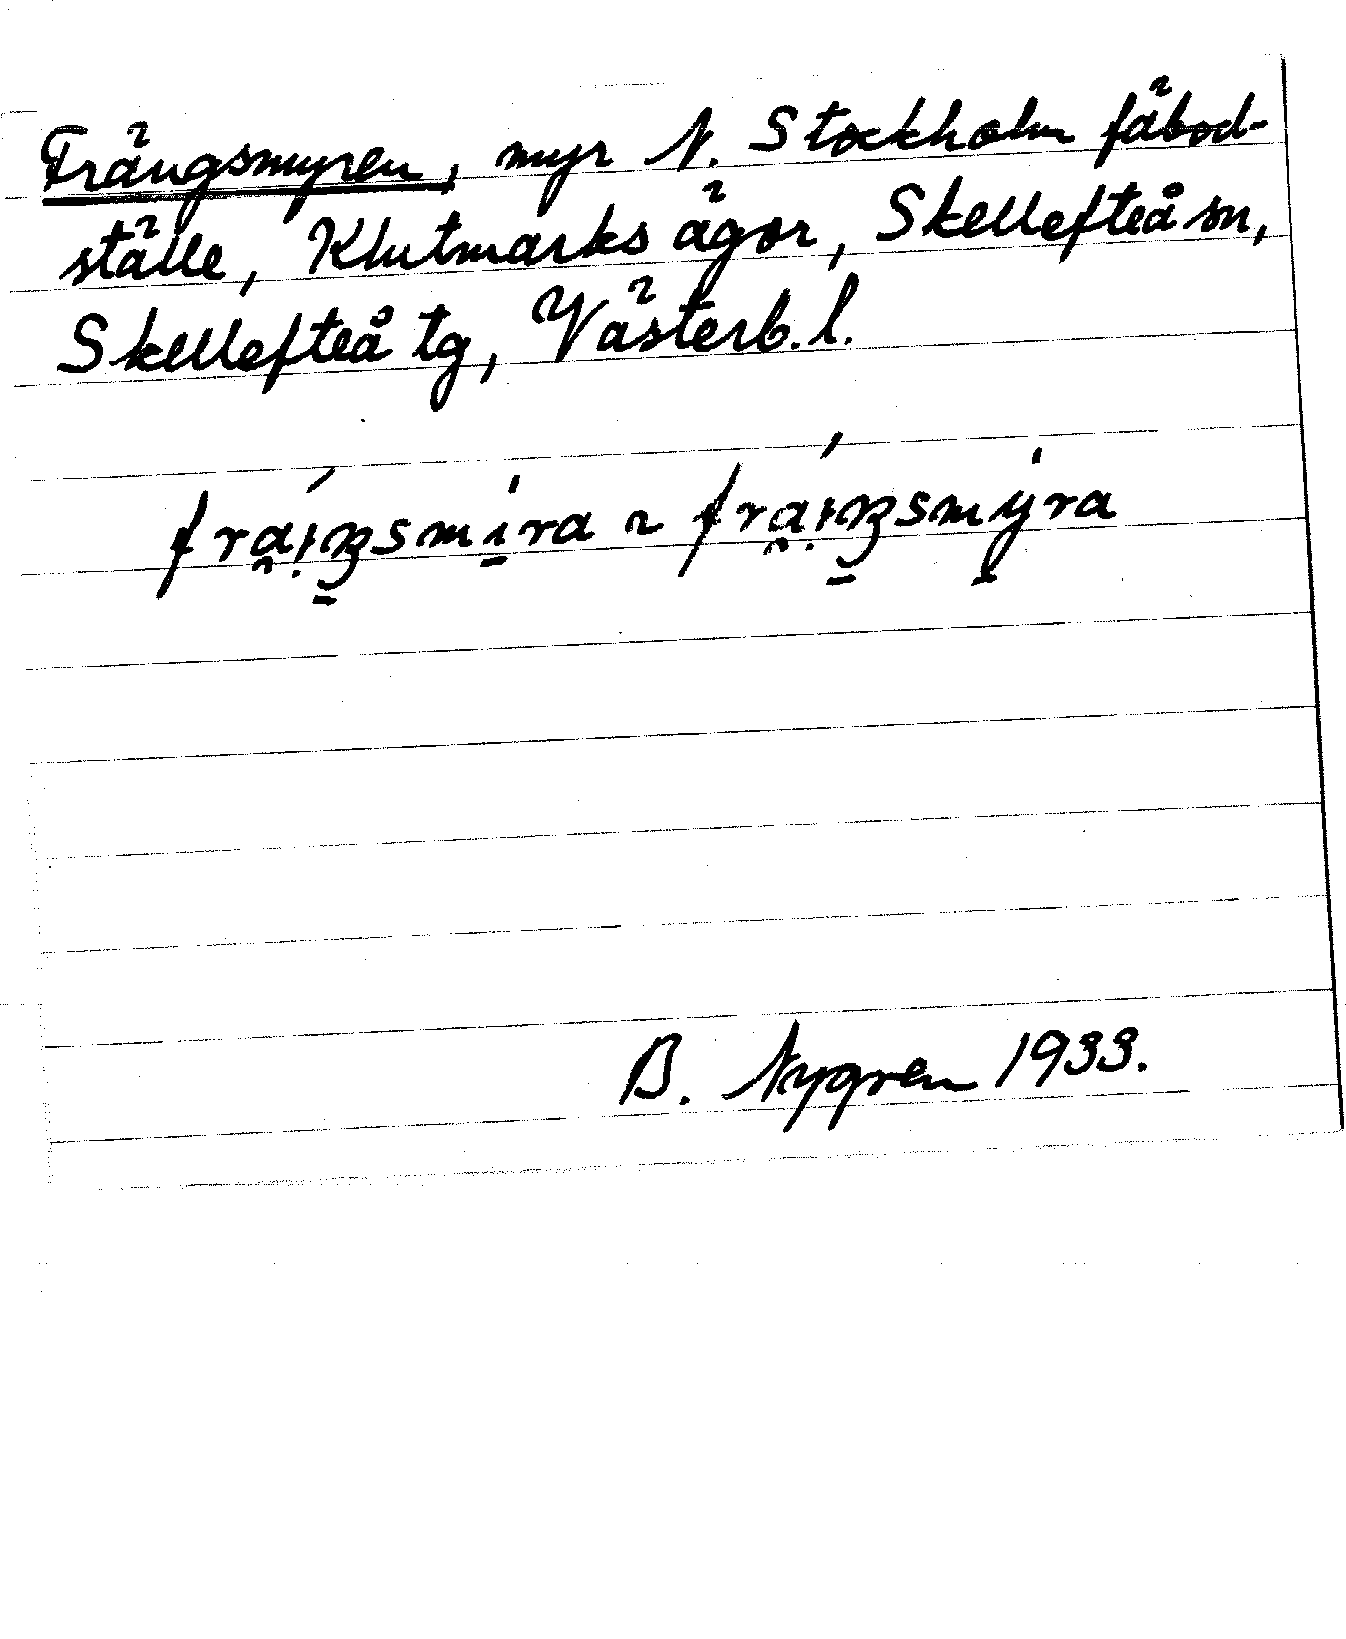 Frängsmyren, myr N. Stockholm fäbod-
ställe, Klutmarks ägor, Skellefteå sn,
Skellefteå tg, Västerb. l.
B. Nygren 1933.